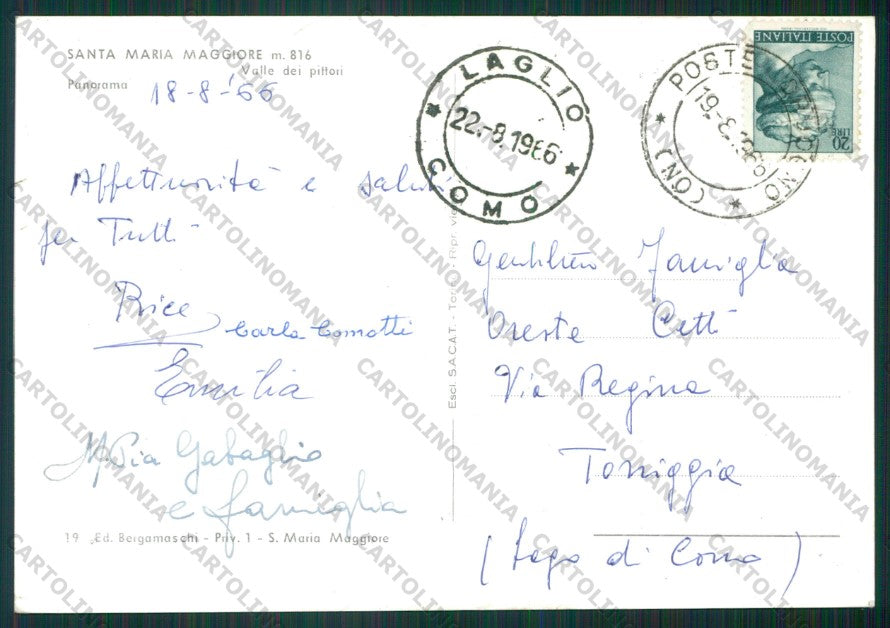 SANTA MARIA MAGGIORE m. 816
Valle dei pittori
Panorama
18-8-'66
Affettuosità e saluti
per Tutti
Bice
Carla Comotti
Emilia
M. Pia Gabaglio
e famiglia
19 Ed. Bergamaschi - Priv. 1 - S. Maria Maggiore
Escl. S.A.C.A.T. - Torino Ripr. vie
LAGLIO
22.-8.1966
COMO
POSTE
19.-8.1966
(NO)
POSTE ITALIANE
20
LIRE
Famiglia
Oreste Cetti
Via Regina
Torriggia
(Lago di Como)
CARTOLINOMANIA